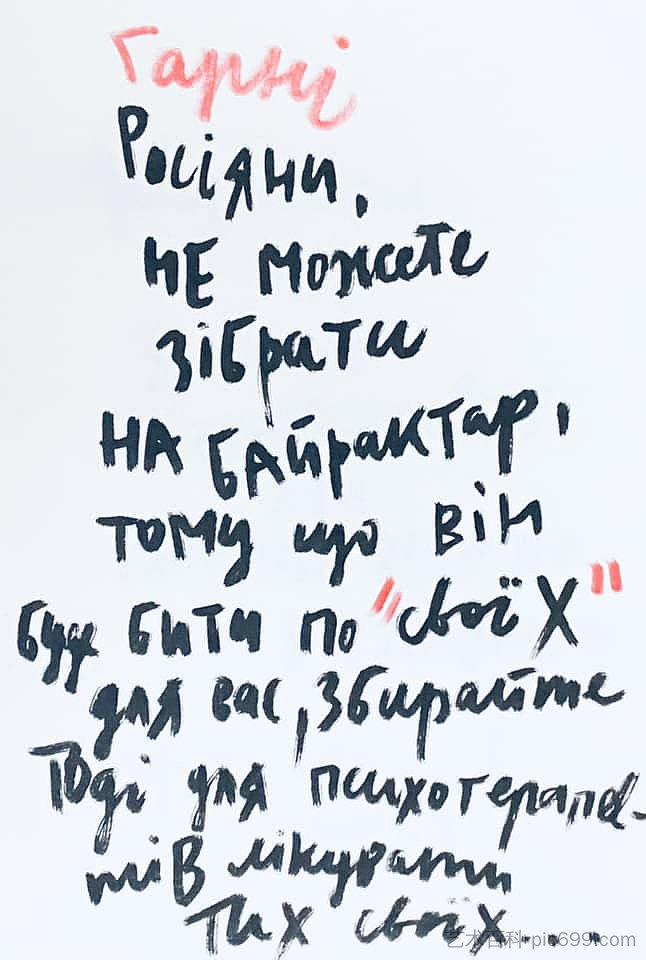 Гарні
Росіяни,
НЕ можете
зібрати
НА БАЙрактар,
тому що він
буде бити по "своїх"
для вас, збирайте
тоді для психотерапев-
тів лікувати
тих своїх...
艺术百科·pic699.com